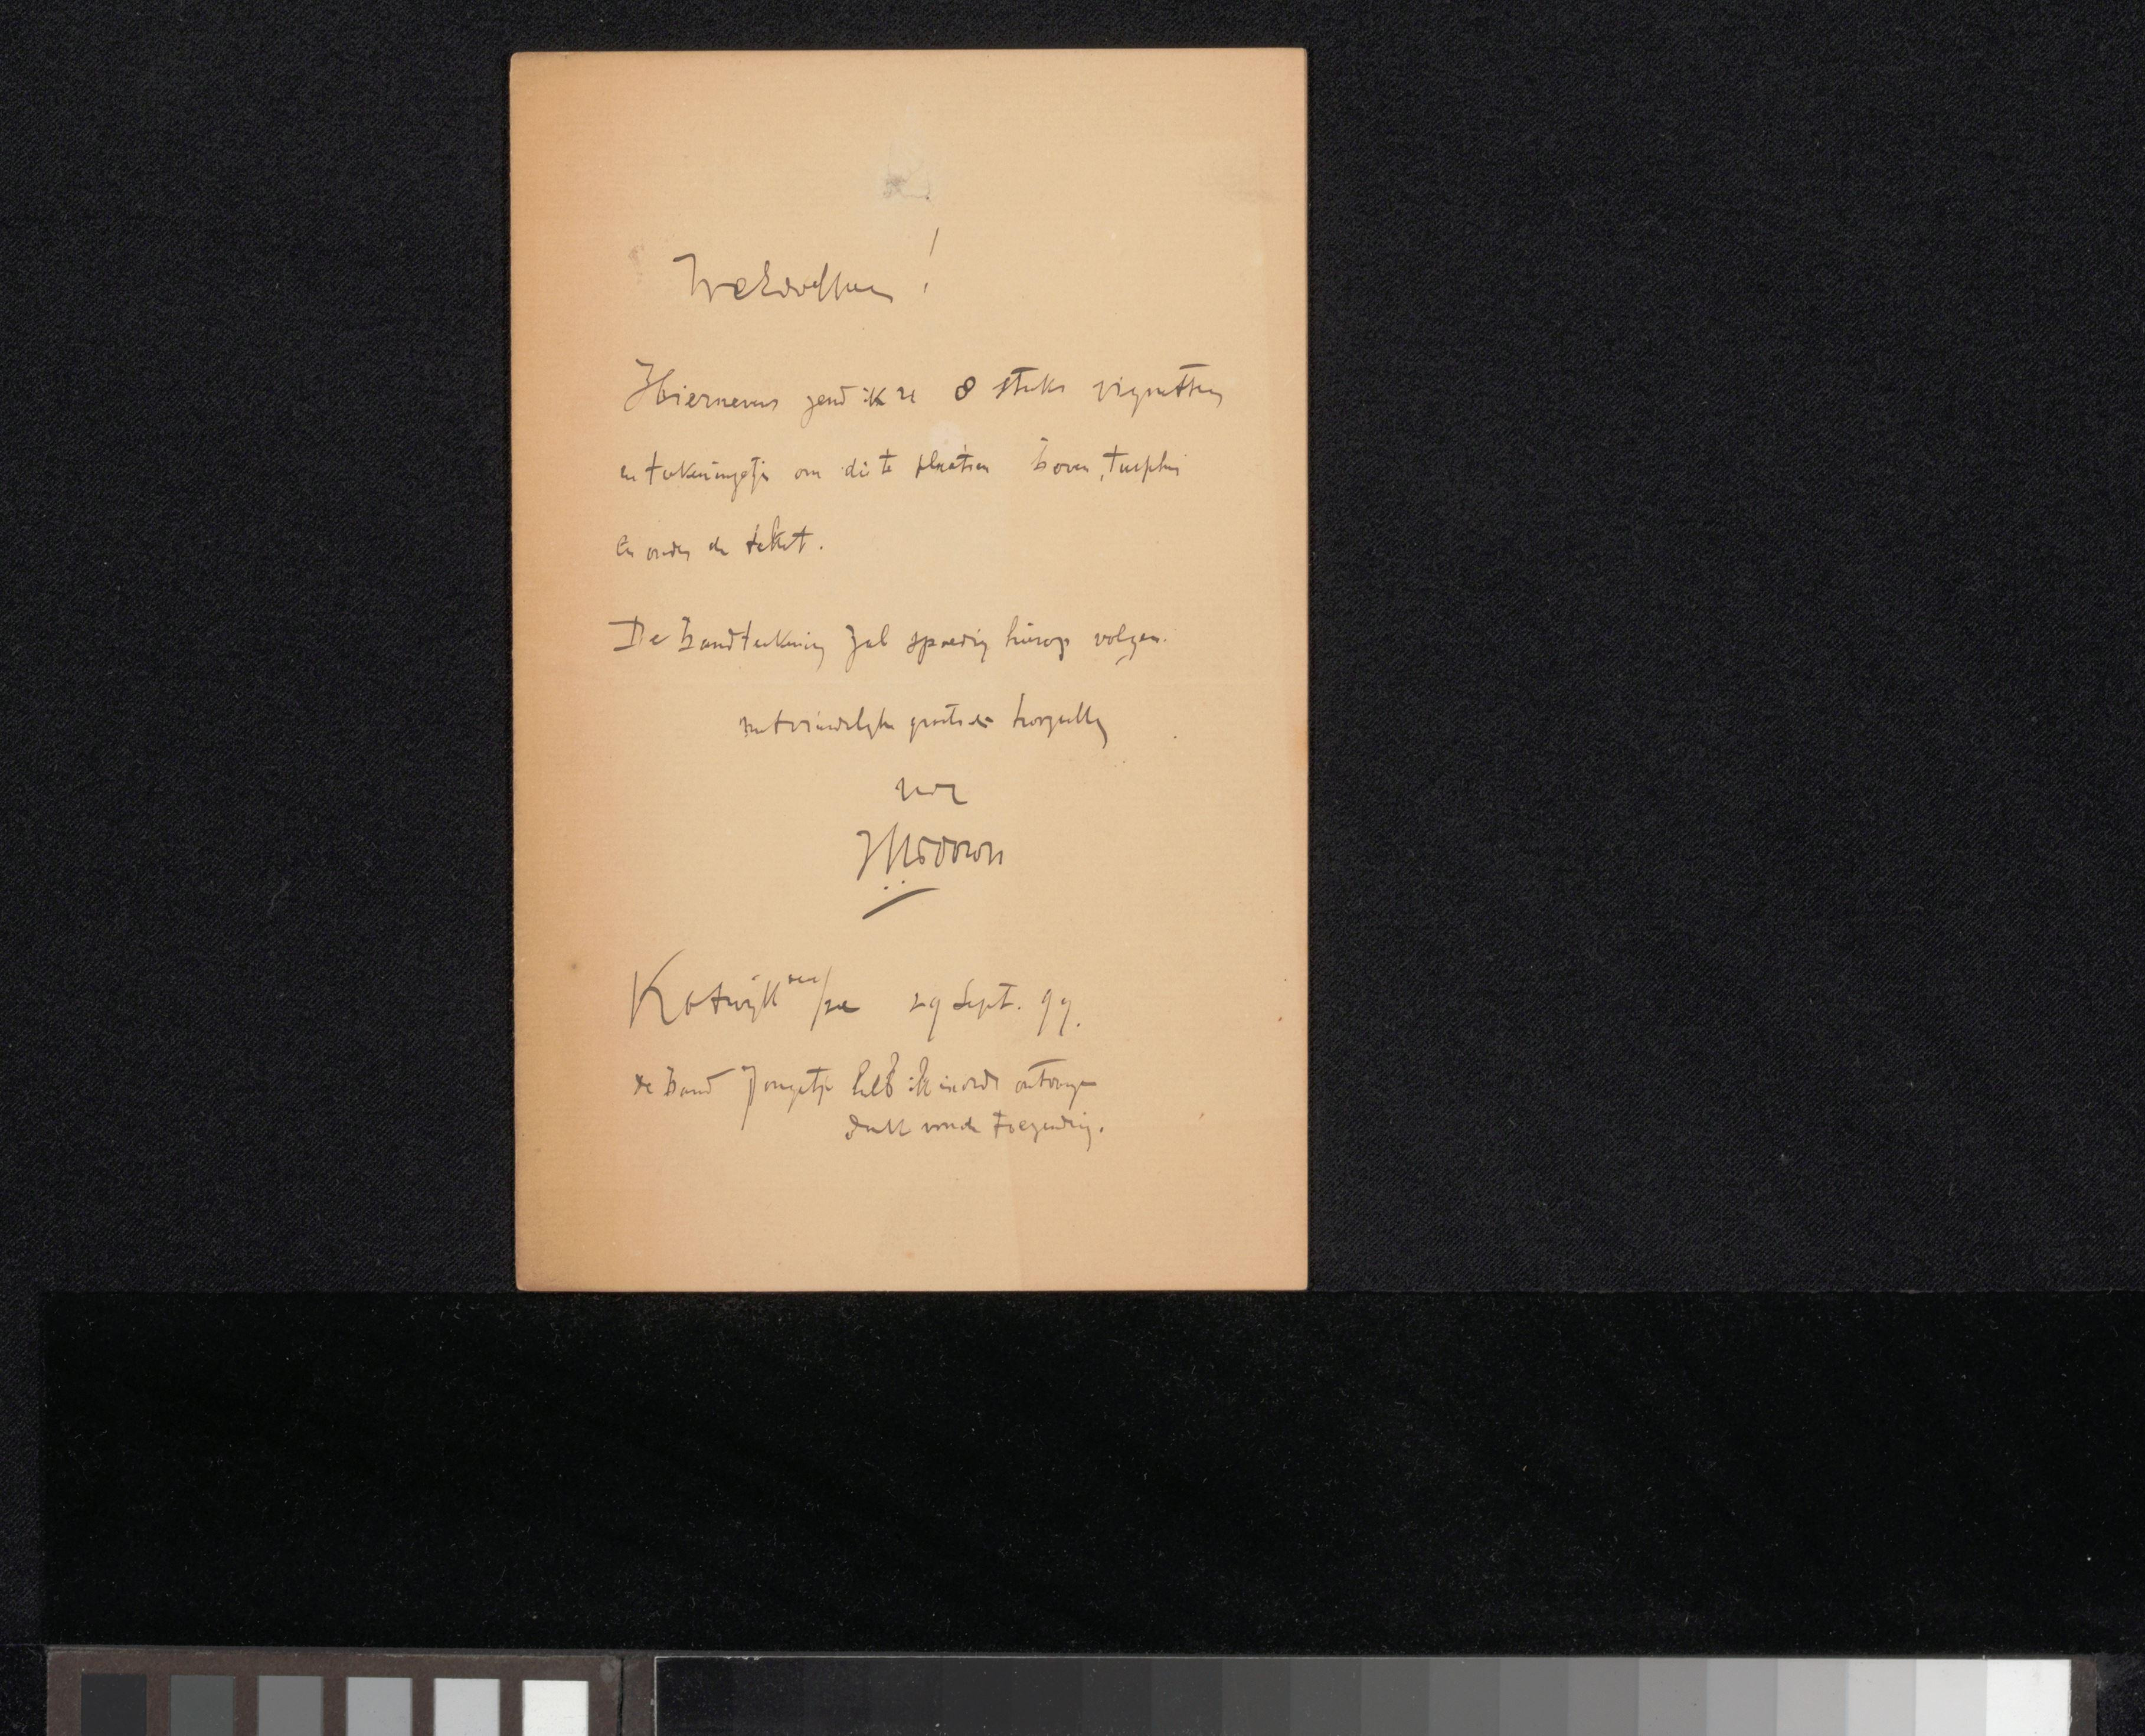 WelEdelheer!
Hiernevens zend ik u 8 stuks vignetten
en teekeningetjes om die te plaatsen boven, tusschen
en onder de tekst.
De bandteekening zal spoedig hierop volgen.
met vriendelijke groeten hoogachtend
voor
Katwijk aan/zee 29 Sept. 99.
de band Jongetje heb ik in orde ontvangen
dank voor de toezending.